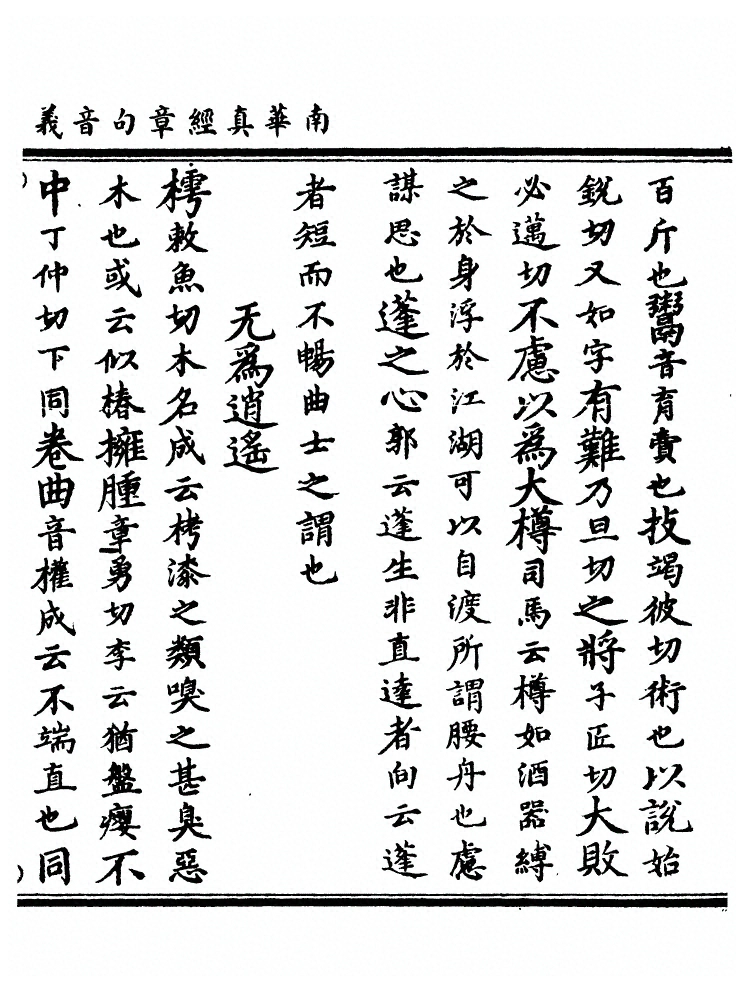 南華真經章句音義
百斤也鬻音育賣也技竭彼切術也以說始
銳切又如字有難乃旦切之將子匠切大敗
必邁切不慮以為大樽司馬云樽如酒器縛
之於身浮於江湖可以自渡所謂腰舟也慮
謀思也蓬之心郭云蓬生非直達者向云蓬
者短而不暢曲士之謂也
无為逍遙
樗敕魚切木名成云栲漆之類嗅之甚臭惡
木也或云似椿擁腫章勇切李云猶盤癭不
中丁仲切下同卷曲音權成云不端直也同